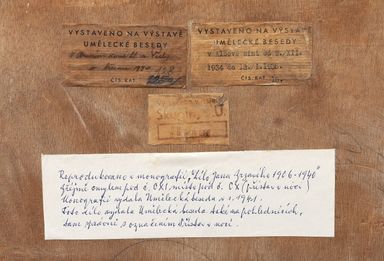 VYSTAVENO NA VÝSTAVĚ
UMĚLECKÉ BESEDY
ČÍS. KAT.
VYSTAVENO NA VÝSTAVĚ
UMĚLECKÉ BESEDY
v Alšově síni od 8./XII.
1934 do 13./I. 1935.
ČÍS. KAT.
Reprodukováno v monografii „Dílo Jana Zrzavého 1906-1940"
zřejmě omylem pod č. CXI, místo pod č. CX (přístav v noci)
Monografii vydala Umělecká beseda v r. 1941.
Toto dílo vydala Umělecká beseda také na pohlednicích,
tam správně s označením Přístav v noci.